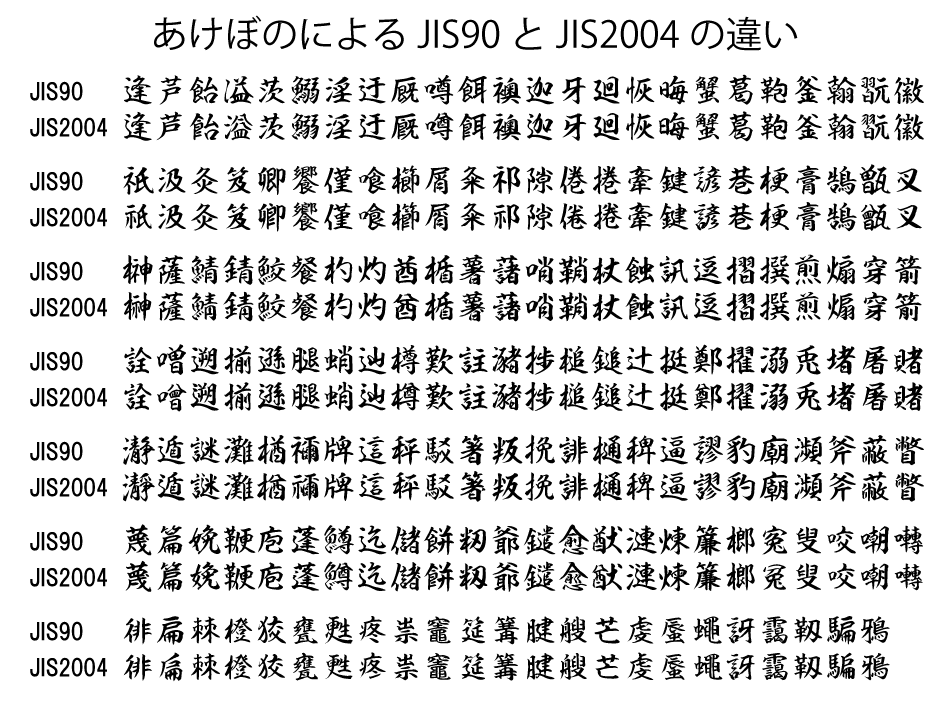 あけぼのによる JIS90 と JIS2004 の違い
JIS90 逢芦飴溢茨鰯淫迂厩噂餌襖迦牙廻恢晦蟹葛鞄釜翰翫徽
JIS2004 逢芦飴溢茨鰯淫迂厩噂餌襖迦牙廻恢晦蟹葛鞄釜翰翫徽
JIS90 祇汲灸笈卿饗僅喰櫛屑粂祁隙倦捲牽鍵諺巷梗膏鵠甑叉
JIS2004 祇汲灸笈卿饗僅喰櫛屑粂祁隙倦捲牽鍵諺巷梗膏鵠甑叉
JIS90 榊薩鯖錆鮫餐杓灼酋楯薯藷哨鞘杖蝕訊逗摺撰煎煽穿箭
JIS2004 榊薩鯖錆鮫餐杓灼酋楯薯藷哨鞘杖蝕訊逗摺撰煎煽穿箭
JIS90 詮噌遡揃遜腿蛸辿樽歎註瀦捗槌鎚辻挺鄭擢溺兎堵屠賭
JIS2004 詮噌遡揃遜腿蛸辿樽歎註瀦捗槌鎚辻挺鄭擢溺兎堵屠賭
JIS90 瀞遁謎灘楢禰牌這秤駁箸叛挽誹樋稗逼謬豹廟瀕斧蔽瞥
JIS2004 瀞遁謎灘楢禰牌這秤駁箸叛挽誹樋稗逼謬豹廟瀕斧蔽瞥
JIS90 蔑篇娩鞭庖蓬鱒迄儲餅籾爺鑓愈猷漣煉簾榔冤叟咬嘲囀
JIS2004 蔑篇娩鞭庖蓬鱒迄儲餅籾爺鑓愈猷漣煉簾榔冤叟咬嘲囀
JIS90 徘扁棘橙狡甕甦疼祟竈筵篝腱艘芒虔蜃蠅訝靄靭騙鴉
JIS2004 徘扁棘橙狡甕甦疼祟竈筵篝腱艘芒虔蜃蠅訝靄靭騙鴉